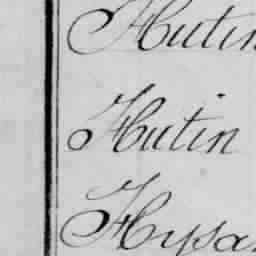 Hutin
Hutin
Hysa